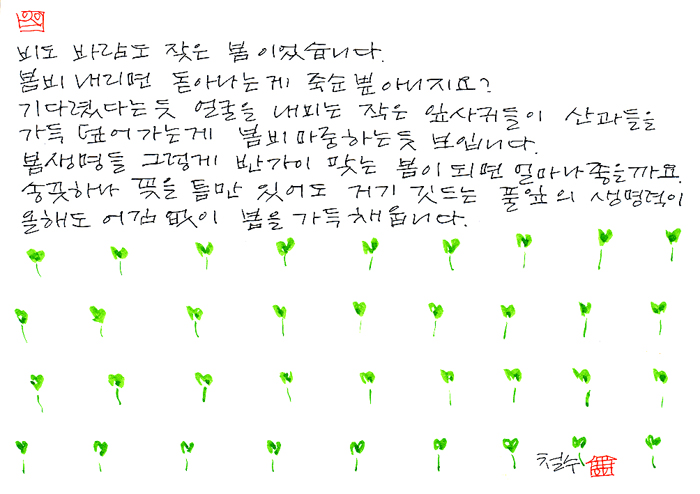 비도 바람도 잦은 봄이었습니다.
봄비 내리면 돋아나는게 죽순 뿐 아니지요?
기다렸다는 듯 얼굴을 내미는 작은 잎사귀들이 산과들을
가득 덮어가는게 봄비마중하는듯 보입니다.
봄생명들 그렇게 반가이 맞는 봄이 되면 얼마나 좋을까요.
송곳하나 꽂을 틈만 있어도 거기 깃드는 풀잎의 생명력이
올해도 어김없이 봄을 가득 채웁니다.
철수